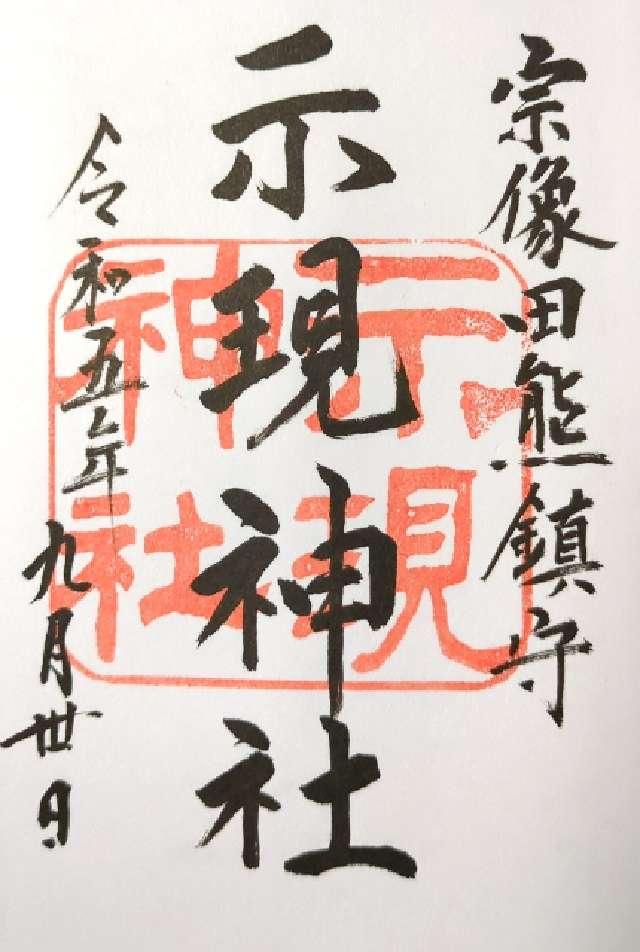 宗像田熊鎮守
示現神社
令和五年九月丗日
示現
神社